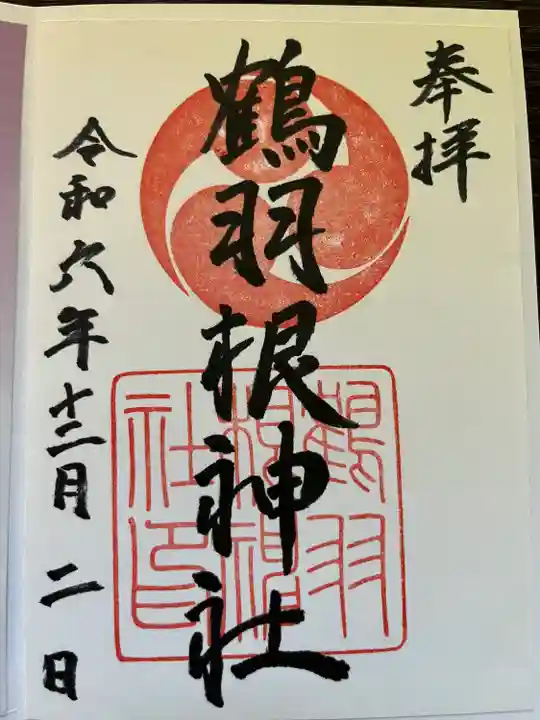 奉拝
鶴羽根神社
鶴羽
根神
社印
令和六年十二月二日